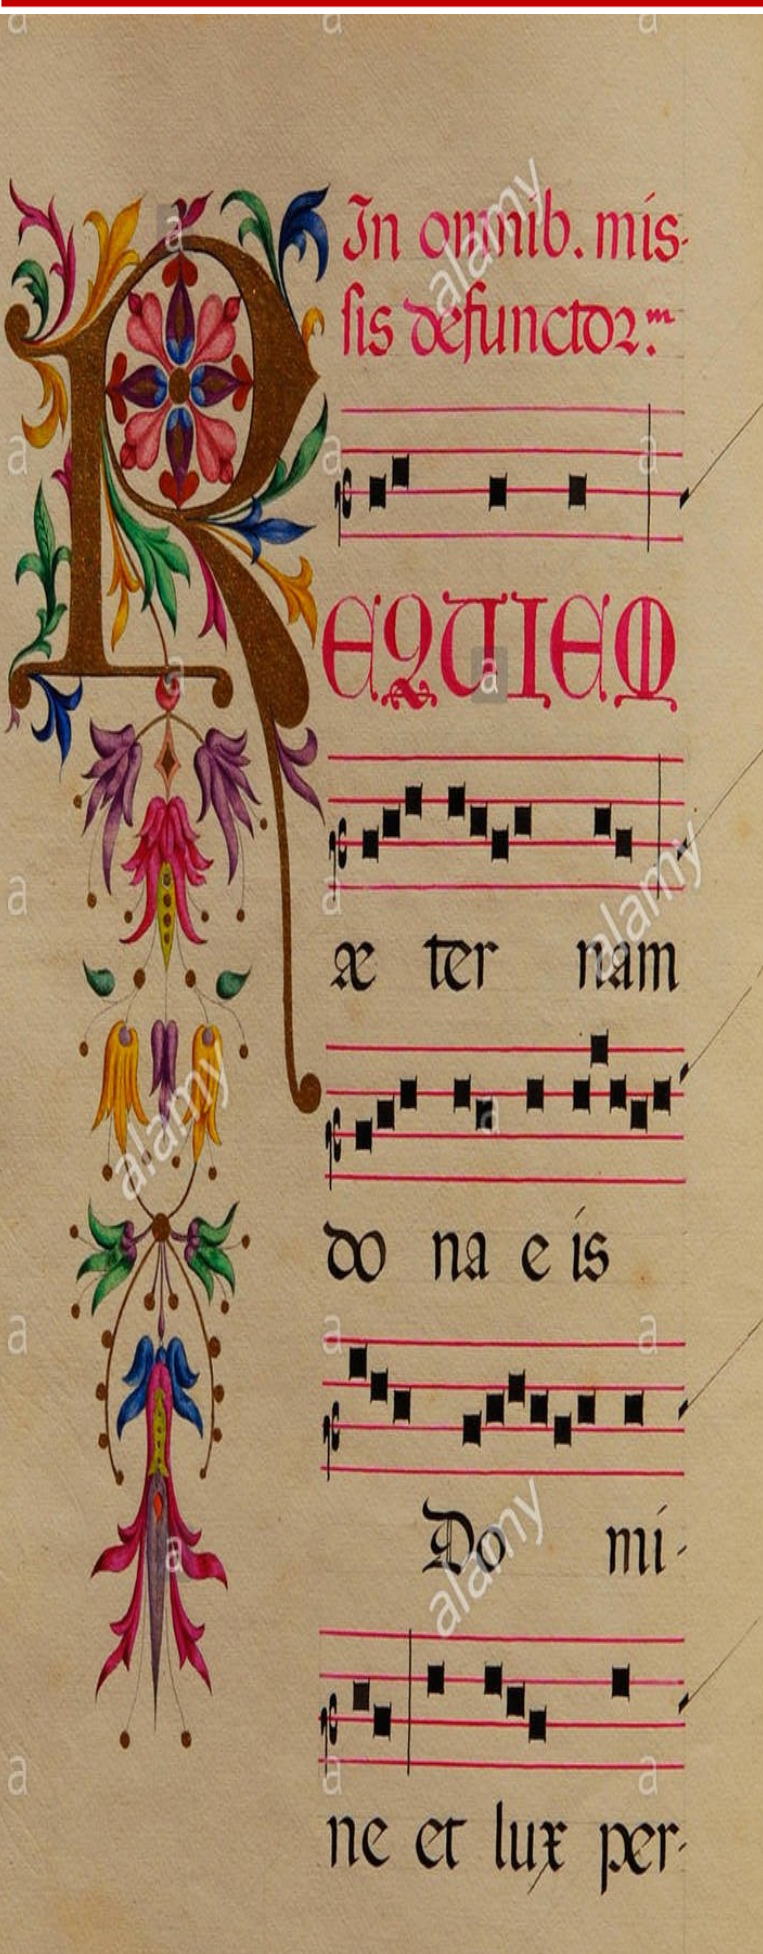 In omnib. mis-
sis defunctor.m
REQUIEM
æ ter nam
do na e is
Do mi-
ne et lux per-